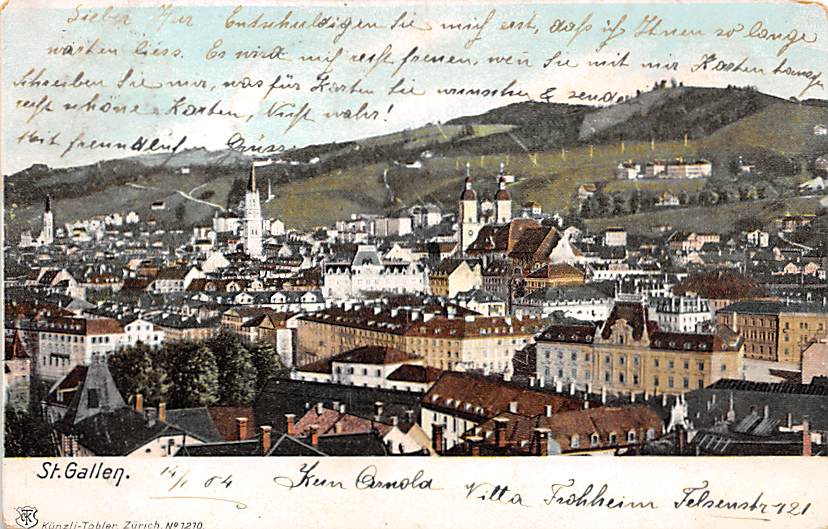 Lieber Herr Entschuldigen Sie mich erst, daß ich Ihnen so lange
warten liess. Es wird mich recht freuen, wen Sie mit mir Karten
Schreiben Sie mir, was für Karten Sie wünschen & sende
recht schöne Karten, Nicht wahr!
Mit freundlichen Grüss
St. Gallen. 04 Arnold Villa Frohheim 121
Künzli-Tobler, Zürich. No 1210.